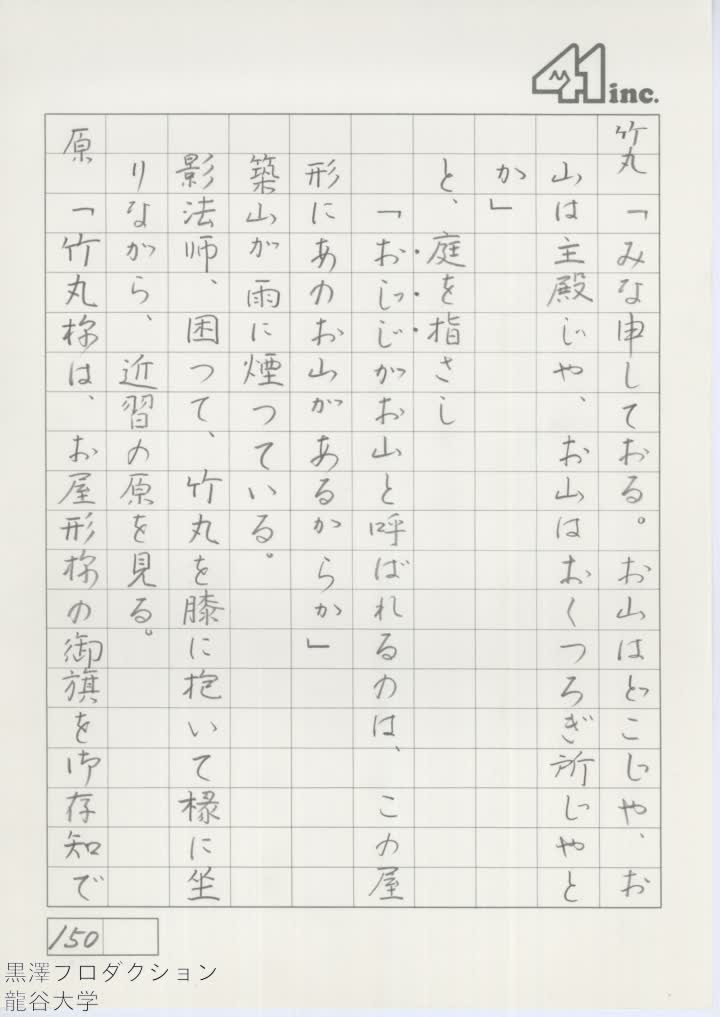 41 inc.
竹丸「みな申しておる。お山はどこじゃ、お
山は主殿じゃ、お山はおくつろぎ所じゃと
か」
と、庭を指さし
「おじじがお山と呼ばれるのは、この屋
形にあのお山があるからか」
築山が雨に煙っている。
影法師、困って、竹丸を膝に抱いて椽に坐
りながら、近習の原を見る。
原「竹丸様は、お屋形様の御旗を御存知で
150
黒澤プロダクション
龍谷大学